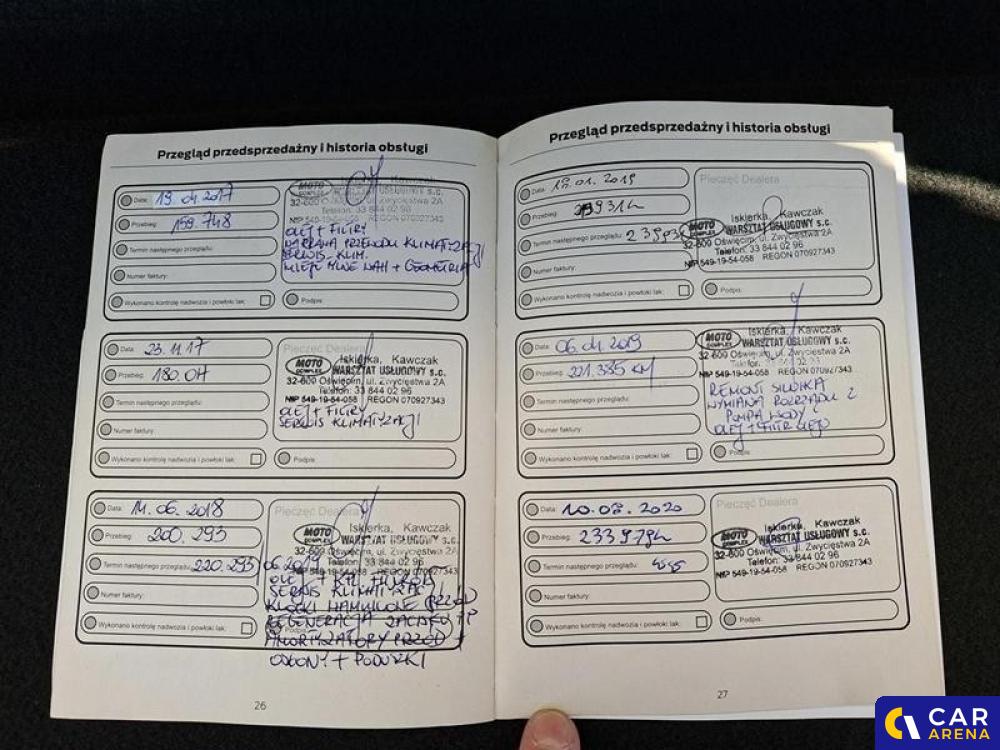 Przegląd przedsprzedażny i historia obsługi
Data: 19.04.2017
Przebieg: 159.748
Termin następnego przeglądu:
Numer faktury:
Wykonano kontrolę nadwozia i powłoki lak:
MOTO COMPLEX
WARSZTAT USŁUGOWY s.c.
32-600 Oświęcim, ul. Zwycięstwa 2A
Telefon: 33 844 02 96
NIP 549-19-54-058 REGON 070927343
OLEJ + FILTRY
NAPRAWA PRZEWODU KLIMATYZACJI
SERWIS KLIM.
+ GEOMETRIA
Podpis:
Data: 23.11.17
Przebieg:
Termin następnego przeglądu:
Numer faktury:
Wykonano kontrolę nadwozia i powłoki lak:
Pieczęć Dealera
MOTO COMPLEX
Iskierka, Kawczak
WARSZTAT USŁUGOWY s.c.
32-600 Oświęcim, ul. Zwycięstwa 2A
Telefon: 33 844 02 96
NIP 549-19-54-058 REGON 070927343
OLEJ + FILTRY
SERWIS KLIMATYZACJI
Podpis:
Data: 14.06.2018
Przebieg: 200.293
Termin następnego przeglądu: 220.293
Numer faktury:
Wykonano kontrolę nadwozia i powłoki lak:
Pieczęć Dealera
MOTO COMPLEX
Iskierka, Kawczak
WARSZTAT USŁUGOWY s.c.
32-600 Oświęcim, ul. Zwycięstwa 2A
Telefon: 33 844 02 96
NIP 549-19-54-058 REGON 070927343
OLEJ + KPL FILTRÓW
SERWIS KLIMATYZACJI
KLOCKI HAMULCOWE PRZÓD
REGENERACJA ZACISKU
AMORTYZATORY PRZÓD +
OSŁONY + PODUSZKI
26
Przegląd przedsprzedażny i historia obsługi
Data: .01.2019
Przebieg:
Termin następnego przeglądu:
Numer faktury:
Wykonano kontrolę nadwozia i powłoki lak:
Pieczęć Dealera
MOTO COMPLEX
Iskierka, Kawczak
WARSZTAT USŁUGOWY s.c.
32-600 Oświęcim, ul. Zwycięstwa 2A
Telefon: 33 844 02 96
NIP 549-19-54-058 REGON 070927343
Podpis:
Data: 06.04.2019
Przebieg: 221.335 KM
Termin następnego przeglądu:
Numer faktury:
Wykonano kontrolę nadwozia i powłoki lak:
MOTO COMPLEX
Iskierka, Kawczak
WARSZTAT USŁUGOWY s.c.
32-600 Oświęcim, ul. Zwycięstwa 2A
NIP 549-19-54-058 REGON 070927343
REMONT SILNIKA
WYMIANA ROZRZĄDU Z
POMPĄ WODY
OLEJ + FILTR OLEJU
Podpis:
Data: 10.08.2020
Przebieg:
Termin następnego przeglądu:
Numer faktury:
Wykonano kontrolę nadwozia i powłoki lak:
Pieczęć Dealera
MOTO COMPLEX
Iskierka, Kawczak
WARSZTAT USŁUGOWY s.c.
32-600 Oświęcim, ul. Zwycięstwa 2A
Telefon: 33 844 02 96
NIP 549-19-54-058 REGON 070927343
Podpis:
27
CAR
ARENA